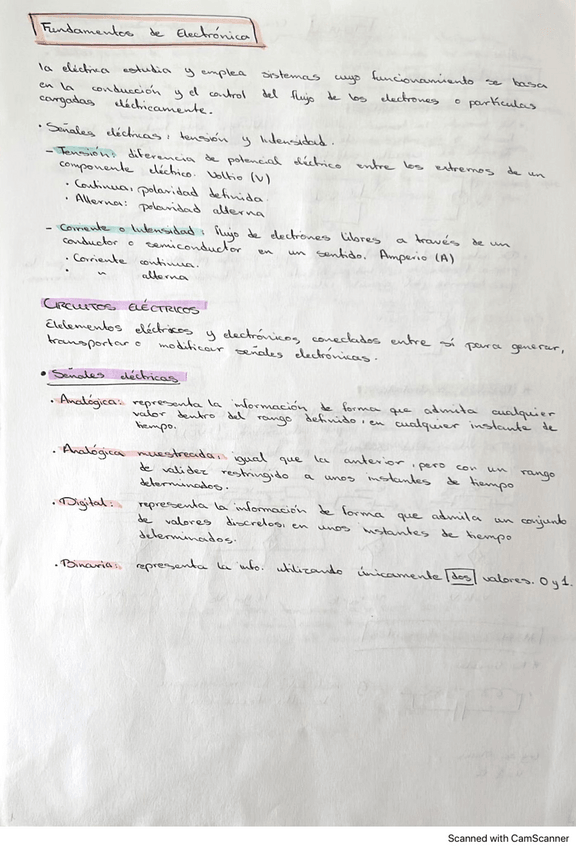 Fundamentos de Electrónica
la eléctrica estudia y emplea sistemas cuyo funcionamiento se basa
en la conducción y el control del flujo de los electrones o partículas
cargadas eléctricamente.
• Señales eléctricas: tensión y Intensidad.
- Tensión: diferencia de potencial eléctrico entre los extremos de un
componente eléctrico. Voltio (V)
• Continua: polaridad definida.
• Alterna: polaridad alterna
- Corriente o Intensidad: flujo de electrones libres a través de un
conductor o semiconductor en un sentido. Amperio (A)
• Corriente continua.
• " alterna
CIRCUITOS ELÉCTRICOS
Elelementos eléctricos y electrónicos, conectados entre sí para generar,
transportar o modificar señales electrónicas.
• Señales eléctricas
• Analógica: representa la información de forma que admita cualquier
valor dentro del rango definido, en cualquier instante de
tiempo.
• Analógica muestreada: igual que la anterior, pero con un rango
de validez restringido a unos instantes de tiempo
determinados.
• Digital: representa la información de forma que admita un conjunto
de valores discretos, en unos instantes de tiempo
determinados.
• Binaria: representa la info. utilizando únicamente dos valores. 0 y 1.
Scanned with CamScanner